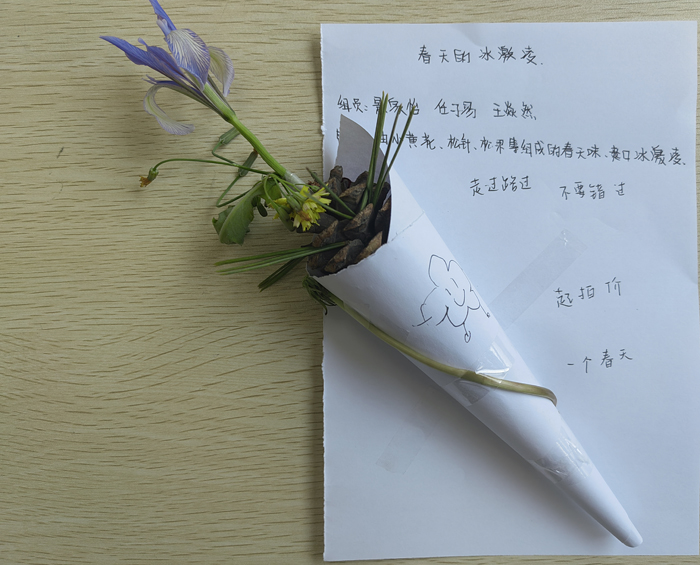 春天的冰激凌.
组员: 任子易 王焱然
小黄花、松针、松果等组成的春天味、爽口冰激凌.
走过路过 不要错过
起拍价
一个春天